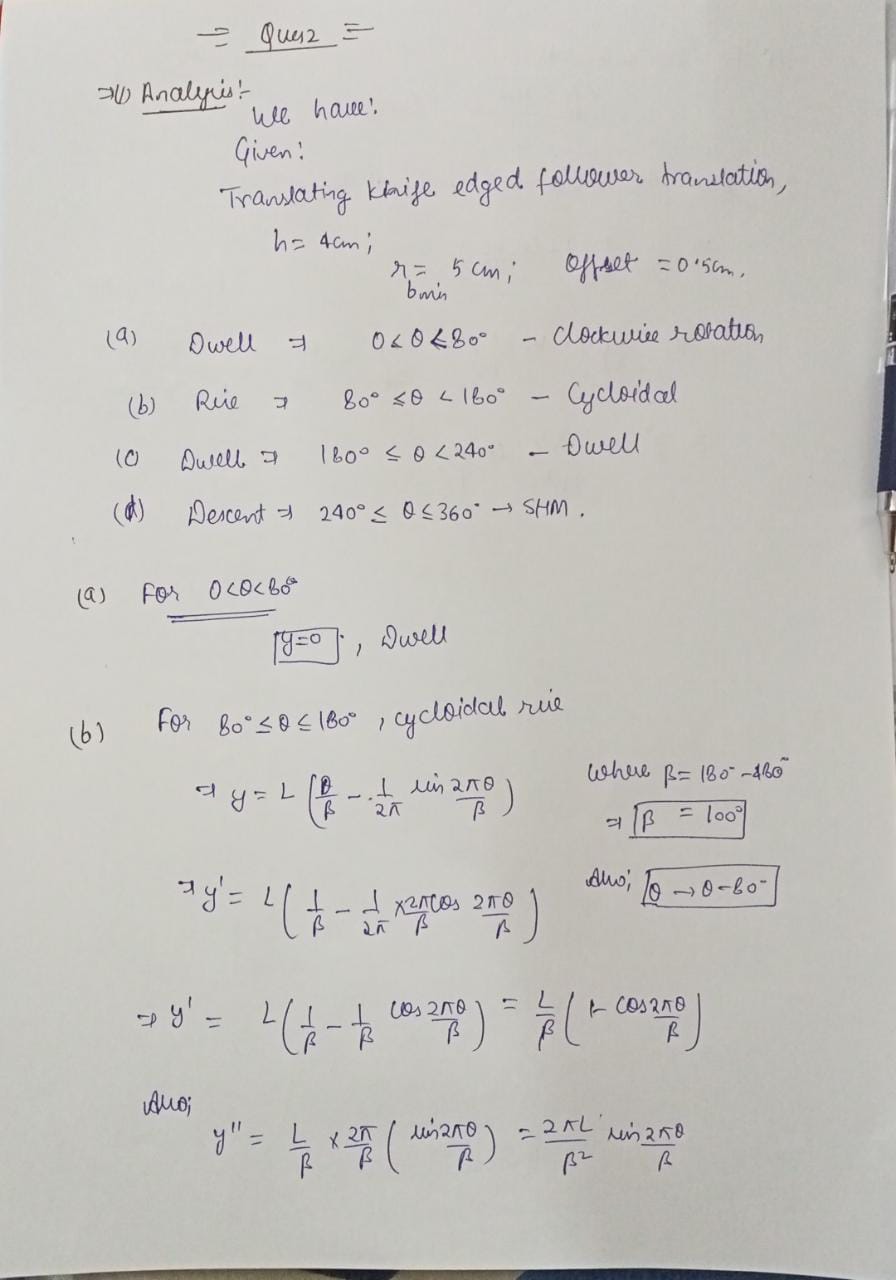 = Quiz =
⇒(1) Analysis:-
We have:
Given:
Translating knife edged follower translation,
h = 4cm;
r_bmin = 5 cm; Offset = 0.5cm.
(a) Dwell ⇒ 0<θ≤80° - Clockwise rotation
(b) Rise ⇒ 80° ≤θ < 180° - Cycloidal
(c) Dwell ⇒ 180° ≤ θ < 240° - Dwell
(d) Descent ⇒ 240° ≤ θ ≤ 360° → SHM.
(a) For 0<θ<80°
y=0, Dwell
(b) For 80° ≤ θ ≤ 180°, cycloidal rise
⇒ y = L (θ/β - 1/2π sin 2πθ/β) Where β = 180° - 80°
⇒ β = 100°
⇒ y' = L (1/β - 1/2π × 2π/β cos 2πθ/β) Also; θ → θ-80°
⇒ y' = L (1/β - 1/β cos 2πθ/β) = L/β (1- cos 2πθ/β)
Also;
y'' = L/β × 2π/β (sin 2πθ/β) = 2πL/β² sin 2πθ/β